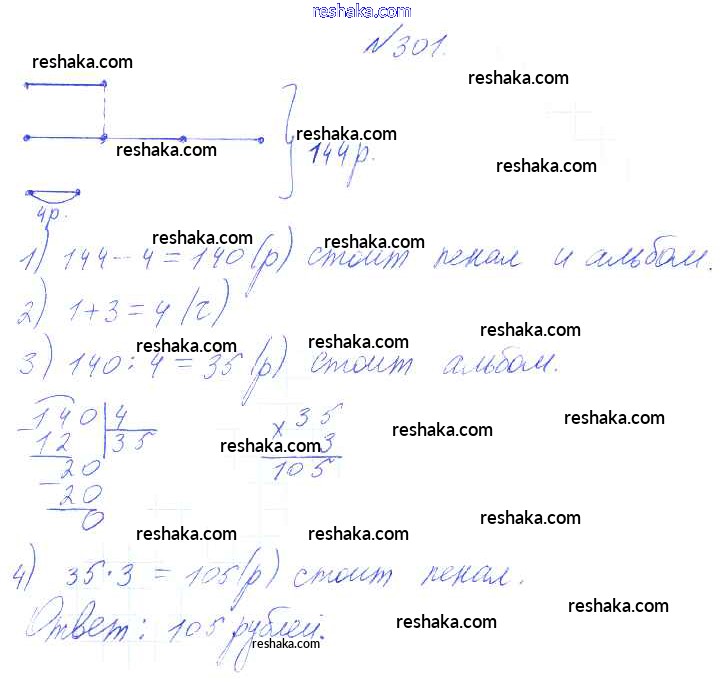 reshaka.com
№301.
reshaka.com
reshaka.com
reshaka.com
reshaka.com
144р.
reshaka.com
4р.
reshaka.com
reshaka.com
1) 144-4=140(р) стоит пенал и альбом.
2) 1+3=4(ч)
reshaka.com
reshaka.com
reshaka.com
3) 140:4=35(р) стоит альбом.
140 4
- 12 35
20
- 20
0
35
× 3
105
reshaka.com
reshaka.com
reshaka.com
reshaka.com
reshaka.com
reshaka.com
4) 35·3=105(р) стоит пенал.
reshaka.com
reshaka.com
Ответ: 105 рублей.
reshaka.com